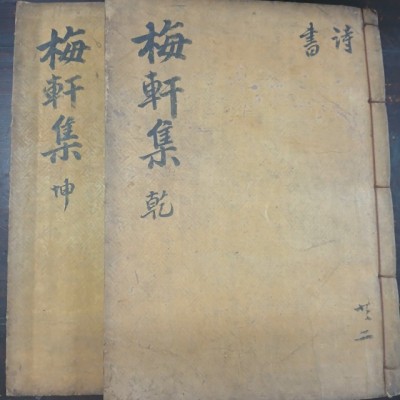 詩
書
共二
梅軒集 乾
梅軒集 坤